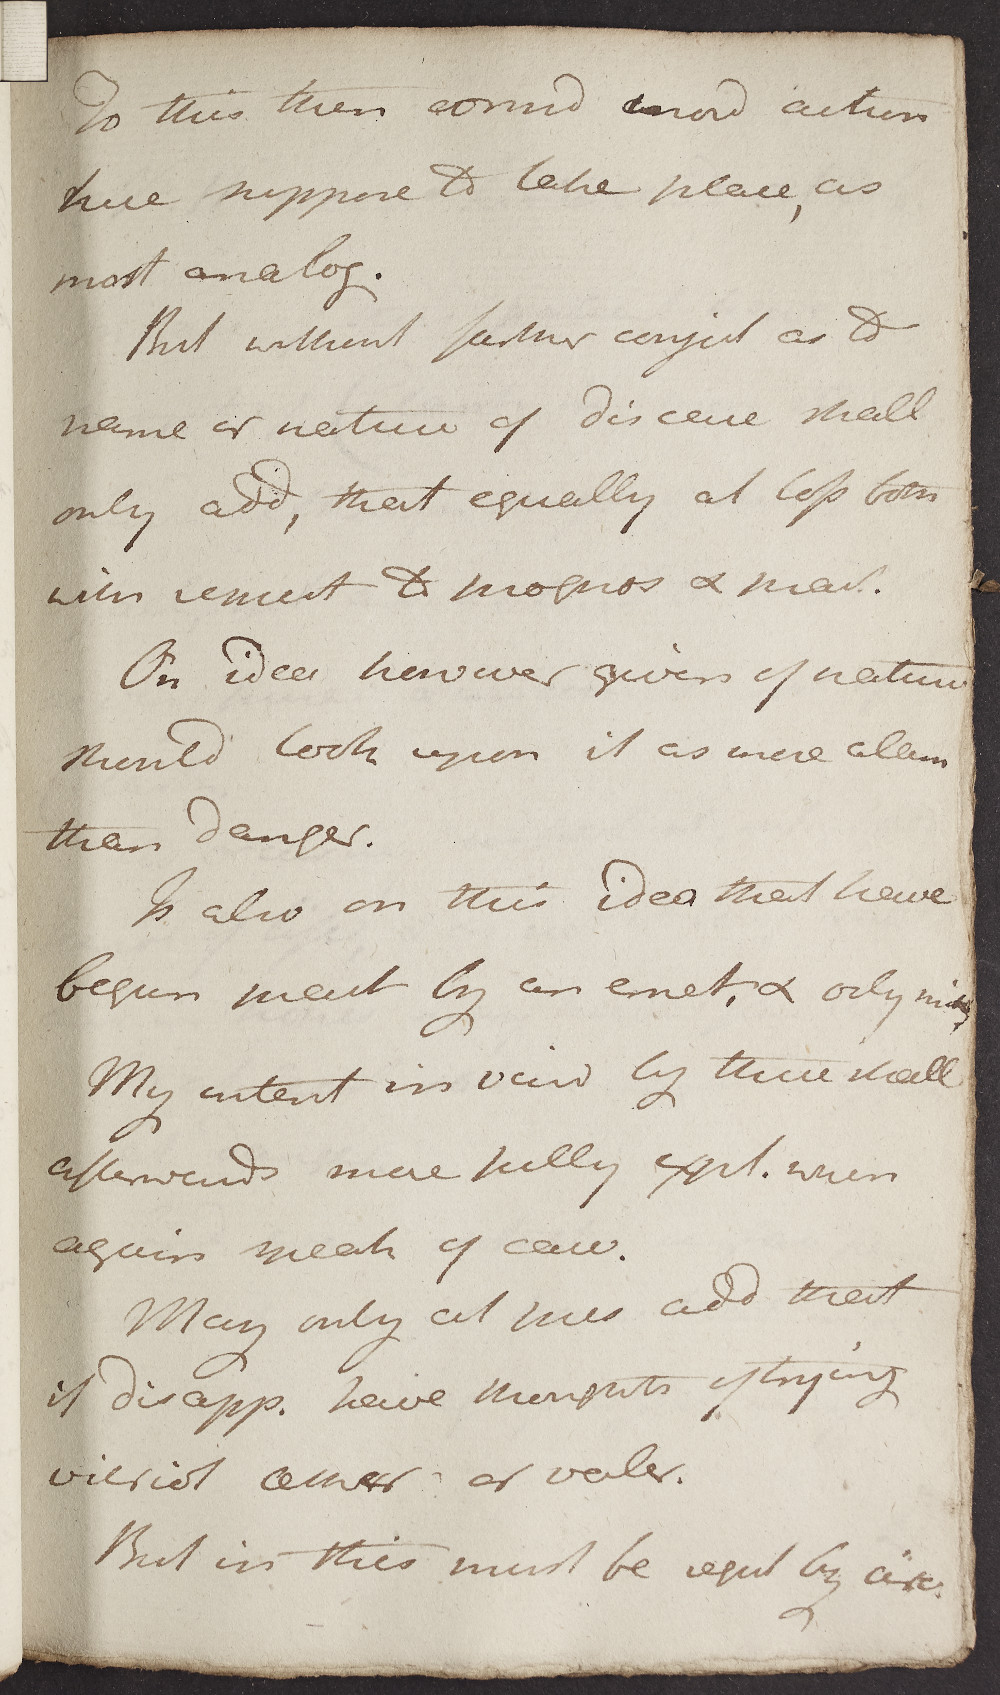 To this then morb action
here suppose to take place, as
most analog.
But without farther conject as to
name or nature of disease shall
only add, that equally at loss both
with respect to prognos & pract.
On idea however given of nature
should look upon it as more alarm
than danger.
Is also on this idea that have
begun practt by an emet, & only
My intent in view by these shall
afterwards more fully expl. when
again speak of case.
May only at pres add that
if disapp. have thoughts of trying
vitriol æther or valer.
But in this must be regul by circ.